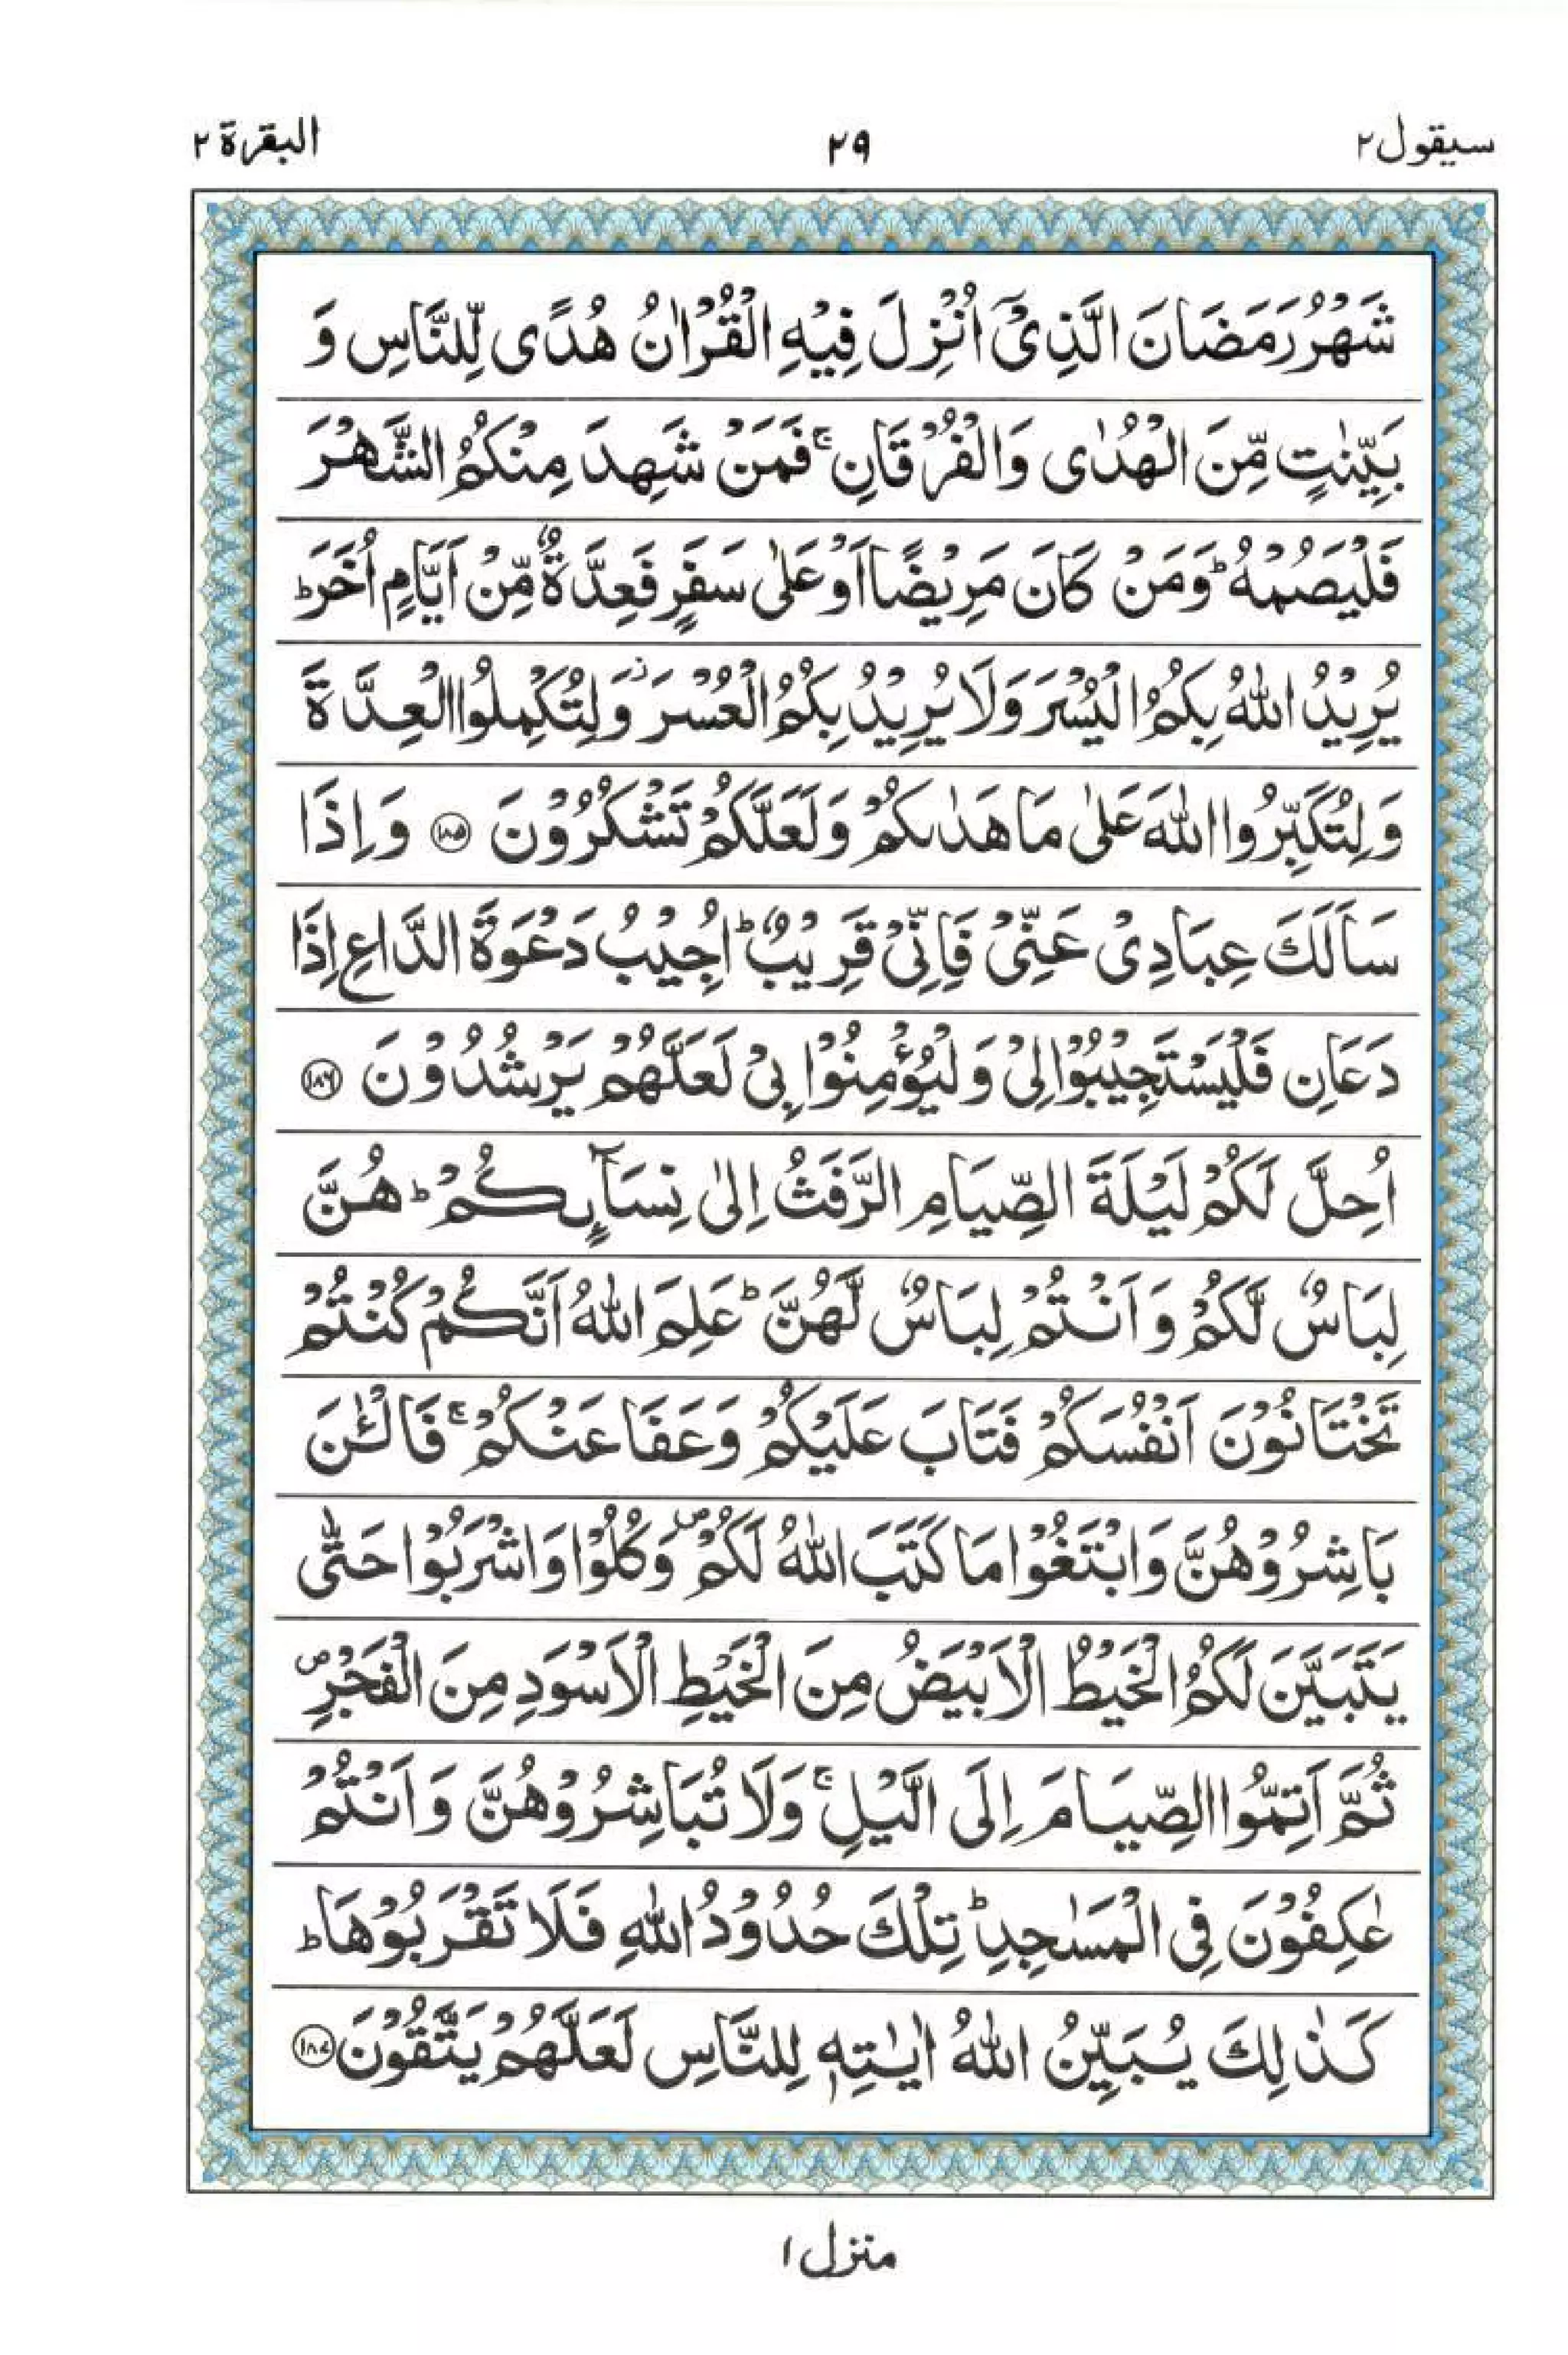 سيقول ٢
٢٩
البقرة ٢
شَهْرُ رَمَضَانَ الَّذِىْٓ اُنْزِلَ فِيْهِ الْقُرْاٰنُ هُدًى لِّلنَّاسِ وَ
بَيِّنٰتٍ مِّنَ الْهُدٰى وَالْفُرْقَانِ ۚ فَمَنْ شَهِدَ مِنْكُمُ الشَّهْرَ
فَلْيَصُمْهُ ؕ وَمَنْ كَانَ مَرِيْضًا اَوْ عَلٰى سَفَرٍ فَعِدَّةٌ مِّنْ اَيَّامٍ اُخَرَ ؕ
يُرِيْدُ اللّٰهُ بِكُمُ الْيُسْرَ وَلَا يُرِيْدُ بِكُمُ الْعُسْرَ ز وَلِتُكْمِلُوا الْعِدَّةَ
وَلِتُكَبِّرُوا اللّٰهَ عَلٰى مَا هَدٰىكُمْ وَلَعَلَّكُمْ تَشْكُرُوْنَ ﴿١٨٥﴾ وَاِذَا
سَاَلَكَ عِبَادِىْ عَنِّىْ فَاِنِّىْ قَرِيْبٌ ؕ اُجِيْبُ دَعْوَةَ الدَّاعِ اِذَا
دَعَانِ فَلْيَسْتَجِيْبُوْا لِىْ وَلْيُؤْمِنُوْا بِىْ لَعَلَّهُمْ يَرْشُدُوْنَ ﴿١٨٦﴾
اُحِلَّ لَكُمْ لَيْلَةَ الصِّيَامِ الرَّفَثُ اِلٰى نِسَآٮِٕكُمْ ؕ هُنَّ
لِبَاسٌ لَّكُمْ وَاَنْتُمْ لِبَاسٌ لَّهُنَّ ؕ عَلِمَ اللّٰهُ اَنَّكُمْ كُنْتُمْ
تَخْتَانُوْنَ اَنْفُسَكُمْ فَتَابَ عَلَيْكُمْ وَعَفَا عَنْكُمْ ۚ فَالْـٰٔنَ
بَاشِرُوْهُنَّ وَابْتَغُوْا مَا كَتَبَ اللّٰهُ لَكُمْ ص وَكُلُوْا وَاشْرَبُوْا حَتّٰى
يَتَبَيَّنَ لَكُمُ الْخَيْطُ الْاَبْيَضُ مِنَ الْخَيْطِ الْاَسْوَدِ مِنَ الْفَجْرِ ص
ثُمَّ اَتِمُّوا الصِّيَامَ اِلَى الَّيْلِ ۚ وَلَا تُبَاشِرُوْهُنَّ وَاَنْتُمْ
عٰكِفُوْنَ فِى الْمَسٰجِدِ ؕ تِلْكَ حُدُوْدُ اللّٰهِ فَلَا تَقْرَبُوْهَا ؕ
كَذٰلِكَ يُبَيِّنُ اللّٰهُ اٰيٰتِهٖ لِلنَّاسِ لَعَلَّهُمْ يَتَّقُوْنَ ﴿١٨٧﴾
منزل ١